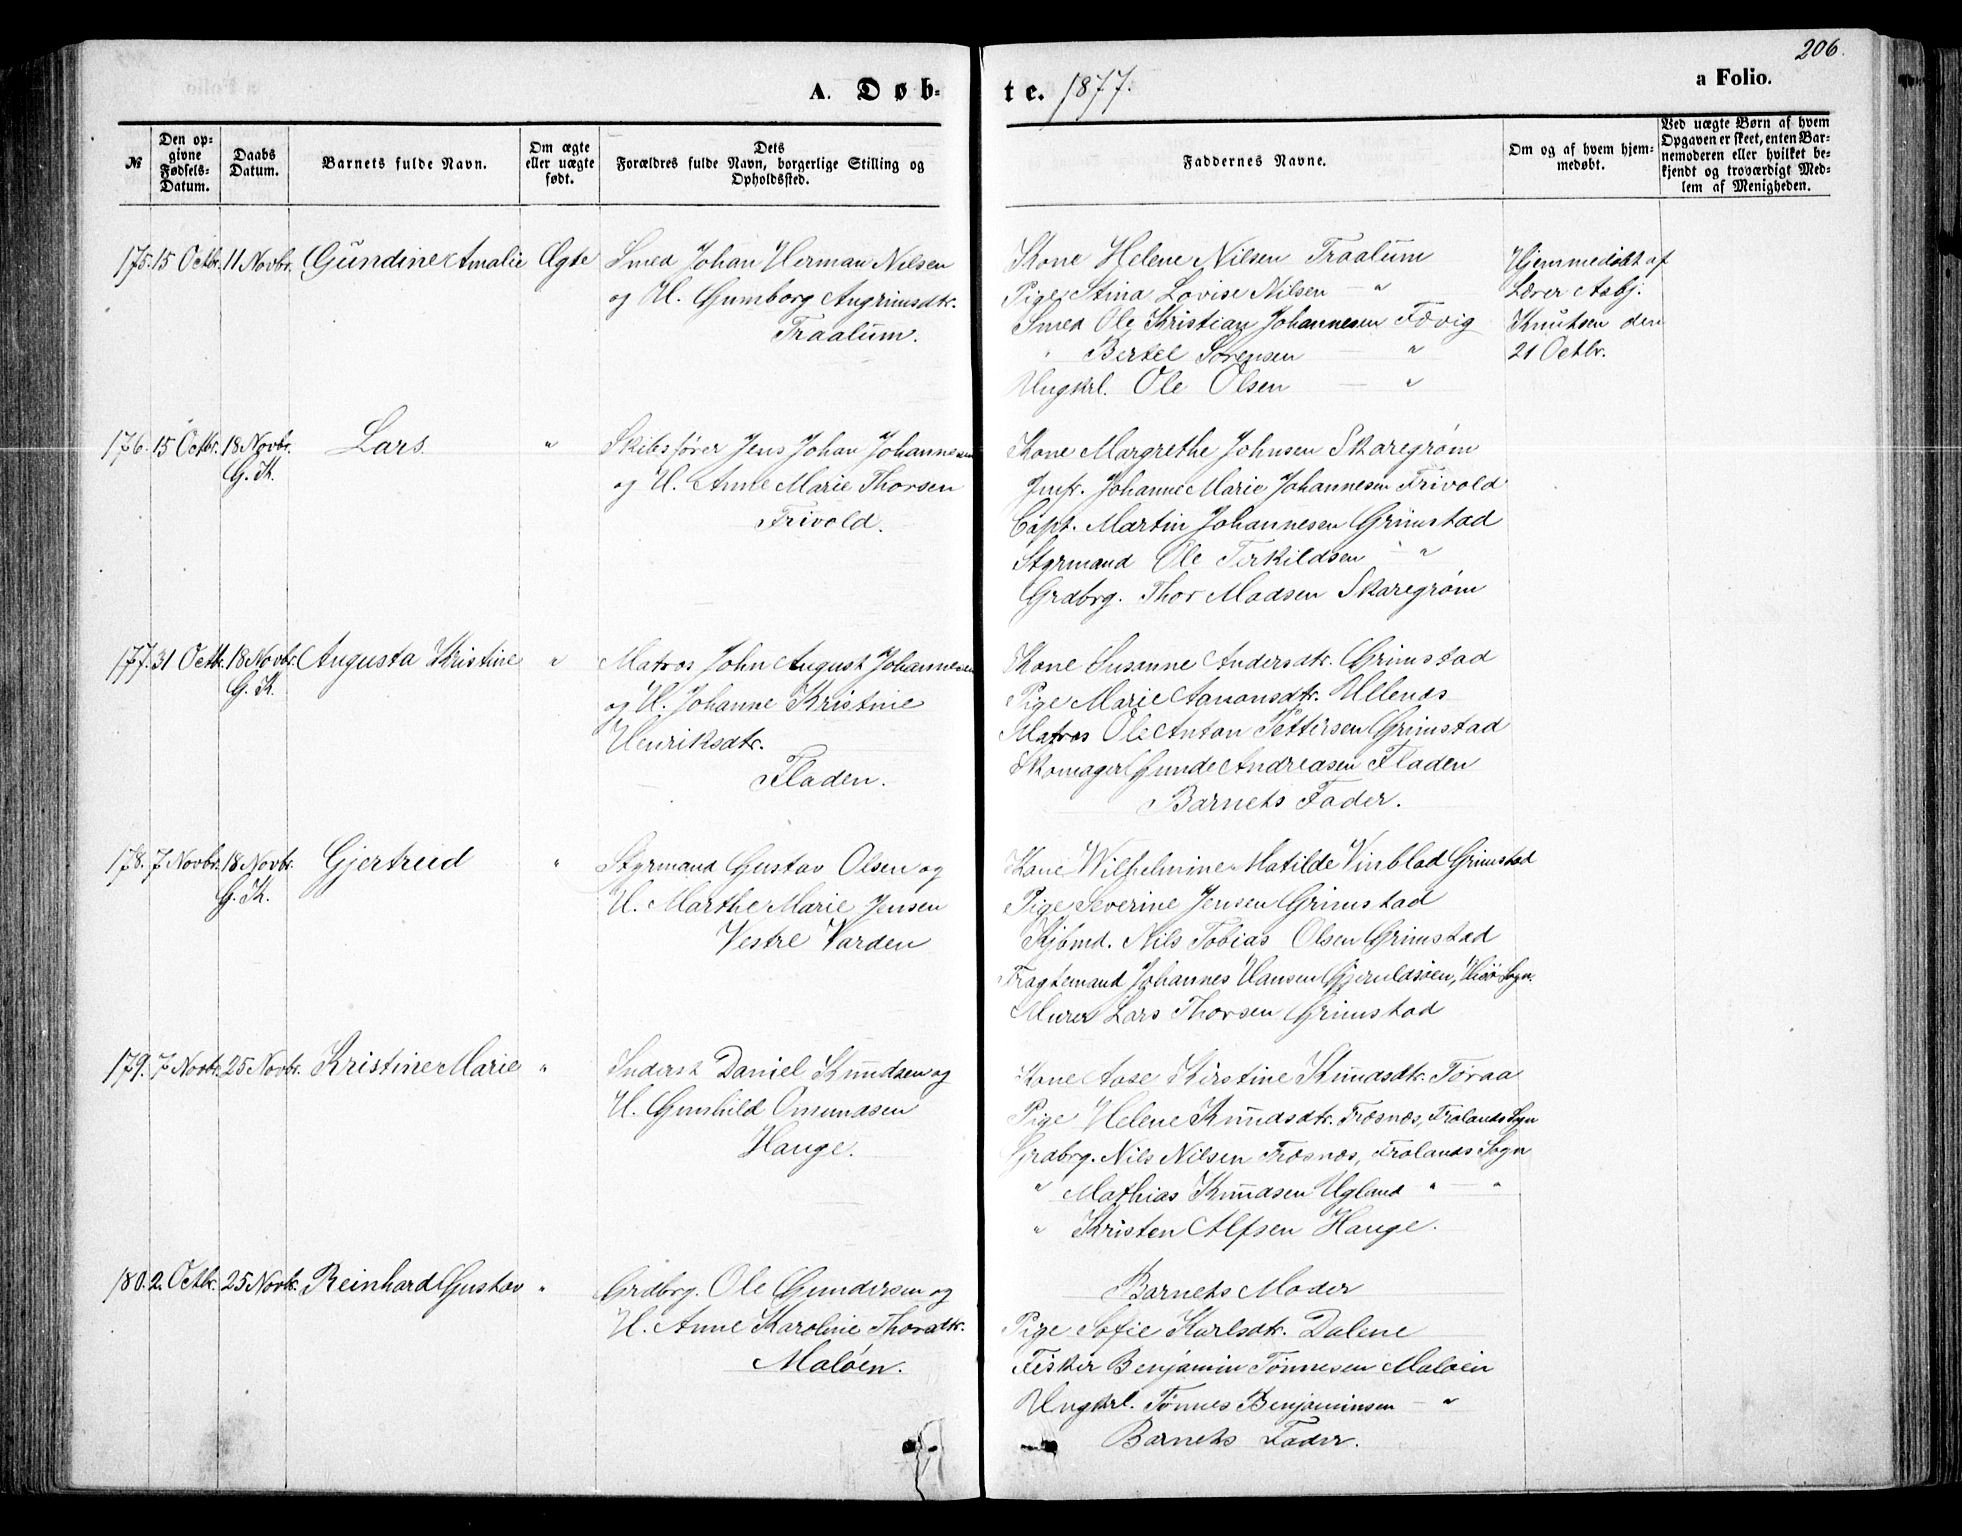 206.
A. Døb-
te. 1877.
a Folio.
№
Den op-
givne
Fødsels-
Datum.
Daabs
Datum.
Barnets fulde Navn.
Om ægte
eller uægte
født.
Dets
Forældres fulde Navn, borgerlige Stilling og
Opholdssted.
Faddernes Navne.
Om og af hvem hjem-
medøbt.
Ved uægte Børn af hvem
Opgaven er skeet, enten Bar-
nemoderen eller hvilket be-
kjendt og troværdigt Med-
lem af Menigheden.
175. 15 Octbr. 11 Novbr. Gundine Amalie Ægte
Smed Johan Herman Nilsen
og H. Gumborg Angrimsdtr.
Traalum.
Kone Helene Nilsen Traalum
Pige Stina Lovise Nilsen — "
Smed Ole Kristian Johannesen Fævig
" Bertel Sørensen — "
Ungkrl. Ole Olsen — "
Hjemmedøbt af
Lærer Asbj.
Knutsen den
21 Octbr.
176. 15 Octbr. 18 Novbr. Lars "
G. K.
Skibsfører Jens Johan Johannesen
og H. Anne Marie Thorsen
Frivold.
Kone Margrethe Johnsen Skaregrøm
Jmfr. Johanne Marie Johannesen Frivold
Capt. Martin Johannesen Grimstad
Styrmand Ole Terkildsen — "
Grdbrg. Thor Madsen Skaregrøm
177. 31 Octbr. 18 Novbr. Augusta Kristine "
G. K.
Matros John August Johannesen
og H. Johanne Kristine
Henriksdtr.
Fladen.
Kone Susanne Andersdtr. Grimstad
Pige Marie Aanonsdtr. Ullenæs
Matros Ole Anton Pettersen Grimstad
Skomager Gunde Andreasen Fladen
Barnets Fader.
178. 7 Novbr. 18 Novbr. Gjertrud "
G. K.
Styrmand Gustav Olsen og
H. Marthe Marie Jensen
Vestre Varden
Kone Wilhelmine Matilde Vinblad Grimstad
Pige Severine Jensen Grimstad
Kjbmd. Nils Tobias Olsen Grimstad
Fragtemand Johannes Hansen Gjeruldsøen, Hisø Sogn.
Murer Lars Thorsen Grimstad
179. 7 Novbr. 25 Novbr. Kristine Marie "
Inderst Daniel Knudsen og
H. Gunhild Omundsen
Hauge.
Kone Aase Kirstine Knudsdtr. Toraa
Pige Helene Knudsdtr. Fræsnæs, Frolands Sogn
Grdbrg. Nils Nilsen Fræsnæs, Frolands Sogn
" Mathias Knudsen Ugland " — "
" Kristen Alfsen Hauge.
180. 2. Octbr. 25 Novbr. Reinhard Gustav "
Grdbrg. Ole Gundersen og
H. Anne Karoline Thorsdtr.
Maløen.
Barnets Moder
Pige Sofie Karlsdtr. Dalene
Fisker Benjamin Tønnesen Maløen
Ungkrl. Tønnes Benjaminsen — "
Barnets Fader.